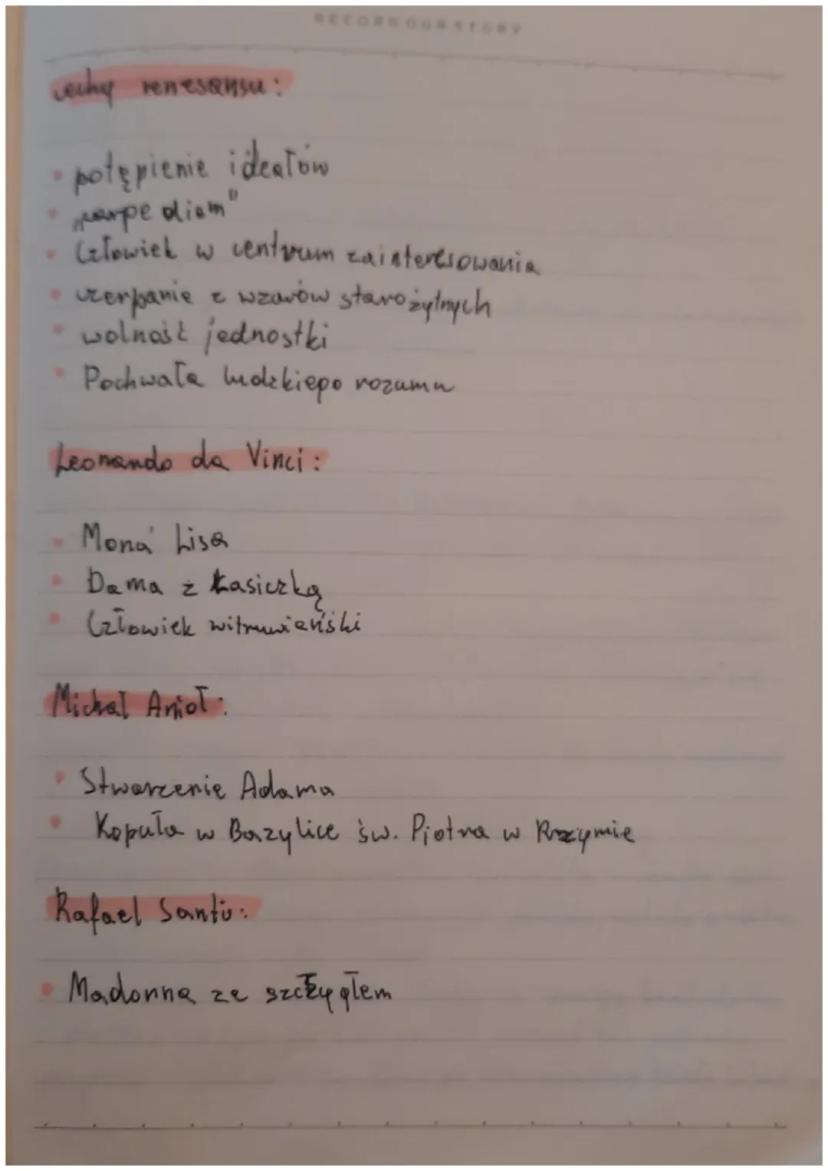 RECORD OUR STORY
cechy renesansu:
potępienie ideałów
„carpe diem"
Człowiek w centrum zainteresowania
czerpanie z wzorów starożytnych
wolność jednostki
Pochwała ludzkiego rozumu
Leonardo da Vinci:
Mona Lisa
Dama z Łasiczką
Człowiek witruwiański
Michał Anioł:
Stworzenie Adama
Kopuła w Bazylice św. Piotra w Rzymie
Rafael Santi:
Madonna ze szczygłem